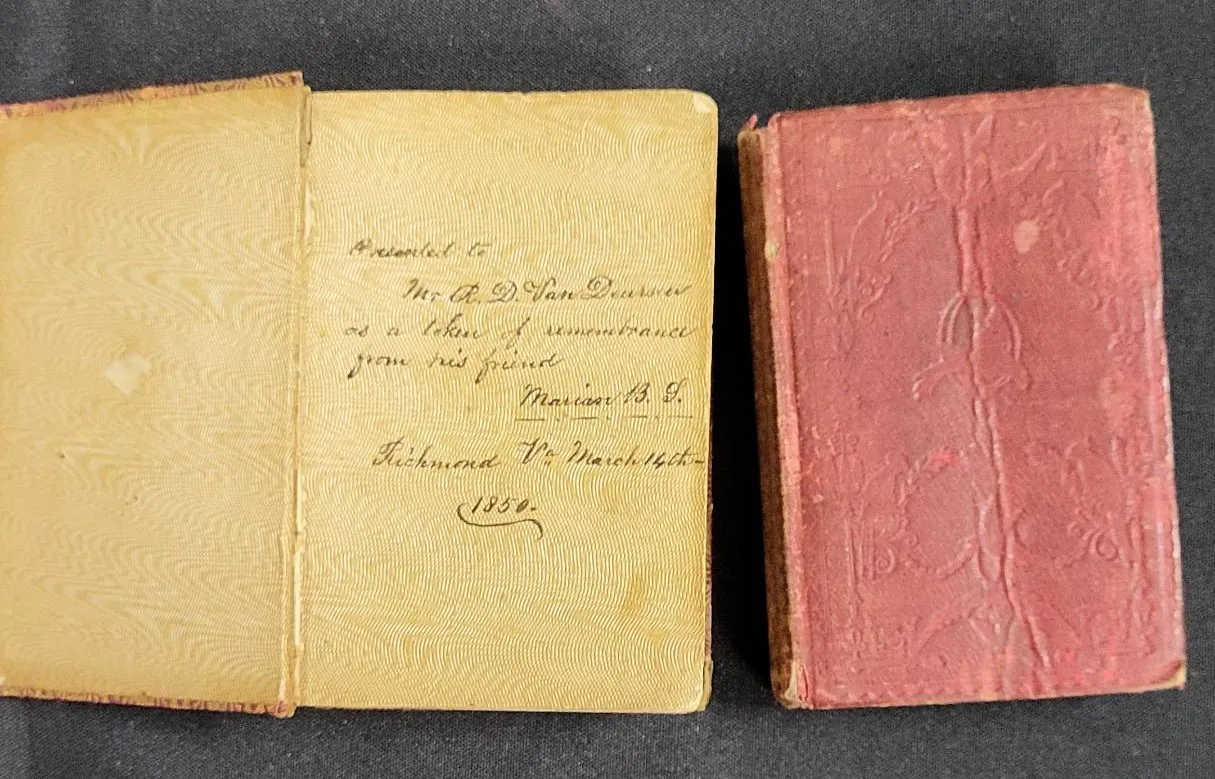 Presented to
Mr R. D. Van Deursen
as a token of remembrance
from his friend
Marian B. S.
Richmond Va March 14th-
1850.